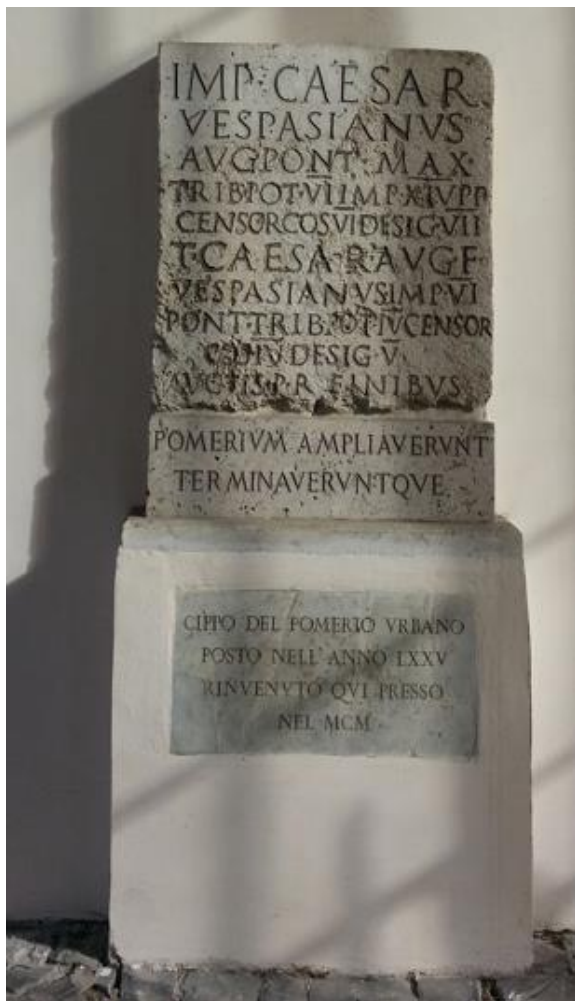 IMP·CAESAR
VESPASIANVS
AVG·PONT·MAX
TRIB·POT·VII·IMP·XIV·P·P
CENSOR·COS·VI·DESIG·VII
T·CAESAR·AVG·F
VESPASIANVS·IMP·VI
PONT·TRIB·POT·IV·CENSOR
COS·IV·DESIG·V
AVCTIS·P·R·FINIBVS
POMERIVM AMPLIAVERVNT
TERMINAVERVNTQVE
CIPPO DEL POMERIO VRBANO
POSTO NELL'ANNO LXXV
RINVENVTO QVI PRESSO
NEL MCM